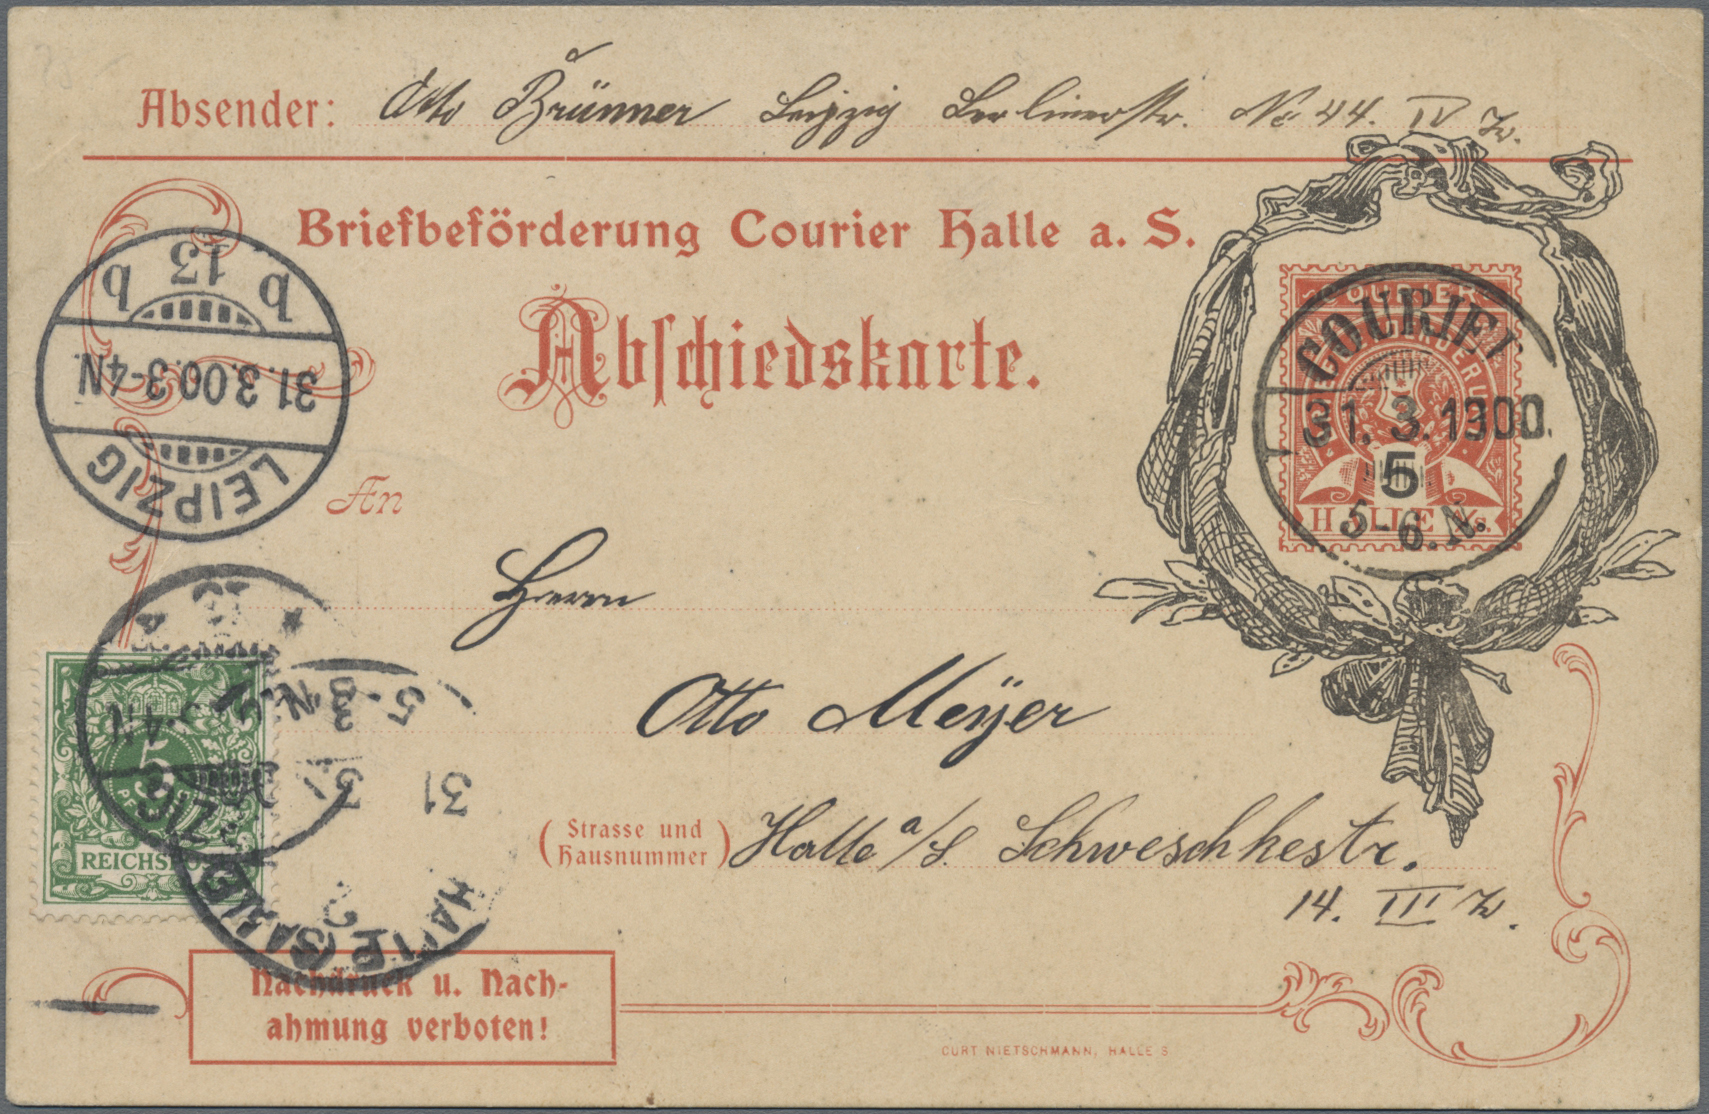 Absender: Otto Brünner Leipzig Berlinerstr. No 44. IV
Briefbeförderung Courier Halle a. S.
Abschiedskarte.
COURIER
31. 3. 1900.
5
5-6.N.
HALLE a/S.
b 13 b
31.3.00.3-4N.
LEIPZIG
An
Herrn
Otto Meyer
(Strasse und
Hausnummer)
Halle a/S. Schweschkestr.
14. III
5
PF
REICHSPO
4N
5-
31
3
HALLE (SAALE)
2
Nachdruck u. Nach-
ahmung verboten!
CURT NIETSCHMANN, HALLE S